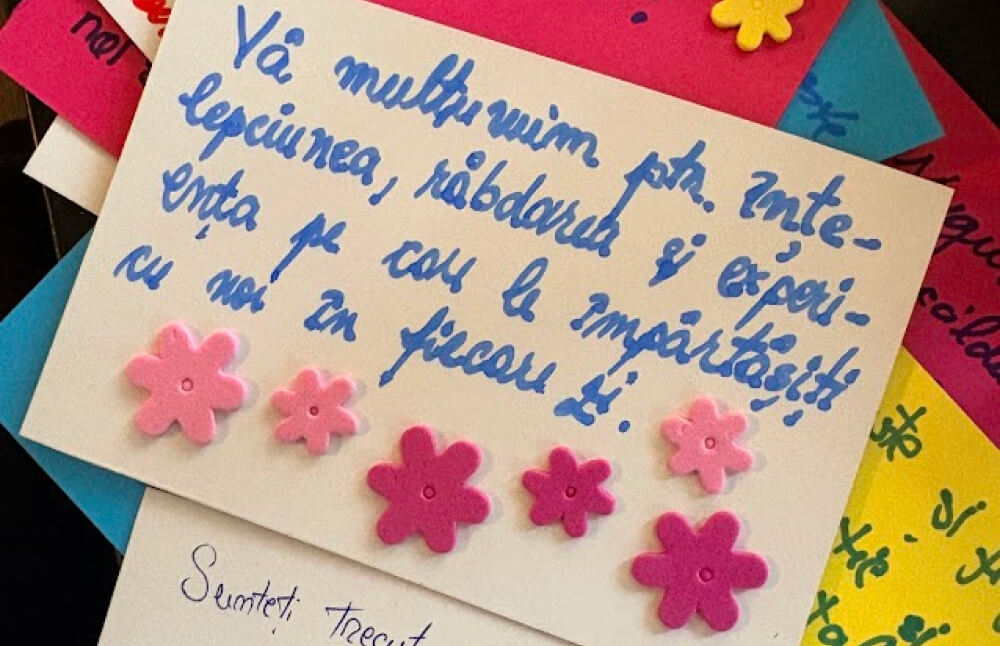 Vă mulțumim ptr. înțe-
lepciunea, răbdarea și experi-
ența pe care le împărtășiți
cu noi în fiecare zi.
Sunteți Trecut
noi
și